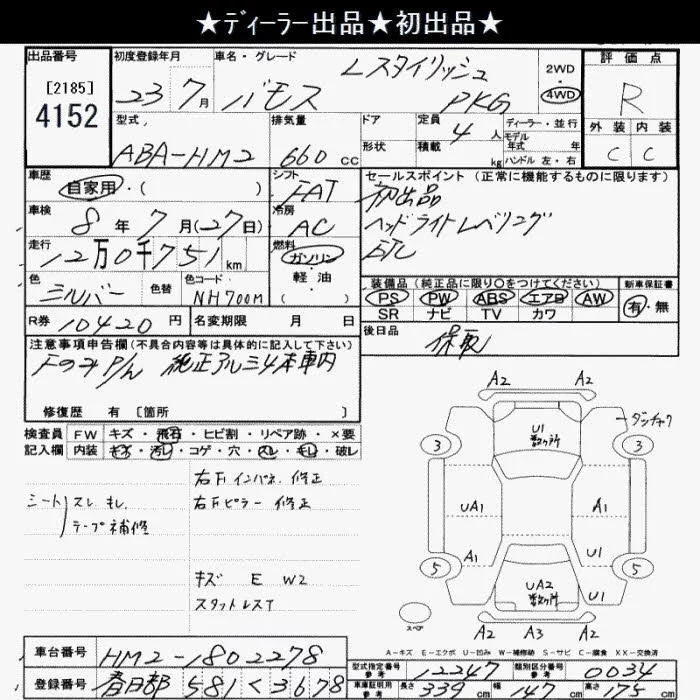 ★ディーラー出品★初出品★
出品番号
[2185]
4152
初度登録年月
23 7月
車名・グレード
バモス
Lスタイリッシュ
PKG
2WD
・
4WD
評価点
R
外装 内装
C C
型式
ABA-HM2
排気量
660 cc
ドア
形状
定員
4人
積載
kg
ディーラー・並行
モデル
年式 年
ハンドル 左・右
車歴
自家用・( )
シフト
FAT
車検
8年7月(27日)
冷房
AC
走行
12万0千751km
燃料
ガソリン
・
軽油
( )
色
シルバー
色替
色コード
NH700M
セールスポイント (正常に機能するものに限ります)
初出品
ヘッドライトレベリング
ETC
装備品 (純正品に限り○をつけてください)
PS PW ABS エアB AW
SR ナビ TV カワ
新車保証書
有・無
R券 10420円
名変期限 月 日
後日品
保取
注意事項申告欄(不具合内容等は具体的に記入して下さい)
Fのみ P/W 純正アルミ4本車内
修復歴 有 [箇所 ]
検査員
記入欄
FW キズ・飛石・ヒビ割・リペア跡・×要
内装 キズ・汚レ・コゲ・穴・スレ・キレ・破レ
シート
スレ キレ
テープ補修
右Fインパネ 修正
右Fピラー 修正
キズ E W2
スタットレスT
A2 A2
U1
数ヶ所
ダンチャク
3 3
UA1 A1
A1 U1
5 5
UA2
数ヶ所
U1
スペア
A2 A3 A2
A-キズ E-エクボ U-凹み W-補修跡 S-サビ C-腐食 XX-交換済
車台番号 HM2-1802278
登録番号 春日部 581 く3678
型式指定番号
参考
12247
類別区分番号
参考
0034
車庫証明用
参考
長さ 339cm
幅 147cm
高さ 175cm